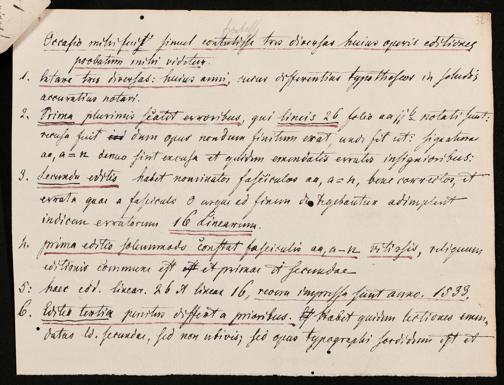 32
Occasio mihi fuit simul contulisse tres diversas huius operis editiones
probatum mihi videtur.
1. Extare tres diversas: huius anni, cuius differentias typotheseos in
accuratius notari.
2. Prima plurimis scatet erroribus, qui lineis 26 folio aa notati sunt:
recusa fuit dum opus nondum finitum erat, unde fit ut: signaturae
aa, a=n denuo sint excusa et quidem emendatis erratis insignioribus:
3. Secunda editio habet nominatos fasciculos aa, a=n, bene correctos, et
errata quae a fasciculo o usque ad finem adimplent
indicem erratorum 16 Linearum.
4. prima editio solummodo constat fasciculis aa, a-n vitiosis, reliquum
editionis commune est et primae et secundae
5: haec ed. linear. 26 et linear 16, revera impressa sunt anno. 1533.
6. Editio tertia penitus differt a prioribus. Habet quidem lectiones emen-
datas ed. secundae, sed non ubivis; sed opus typographi sordidum est et